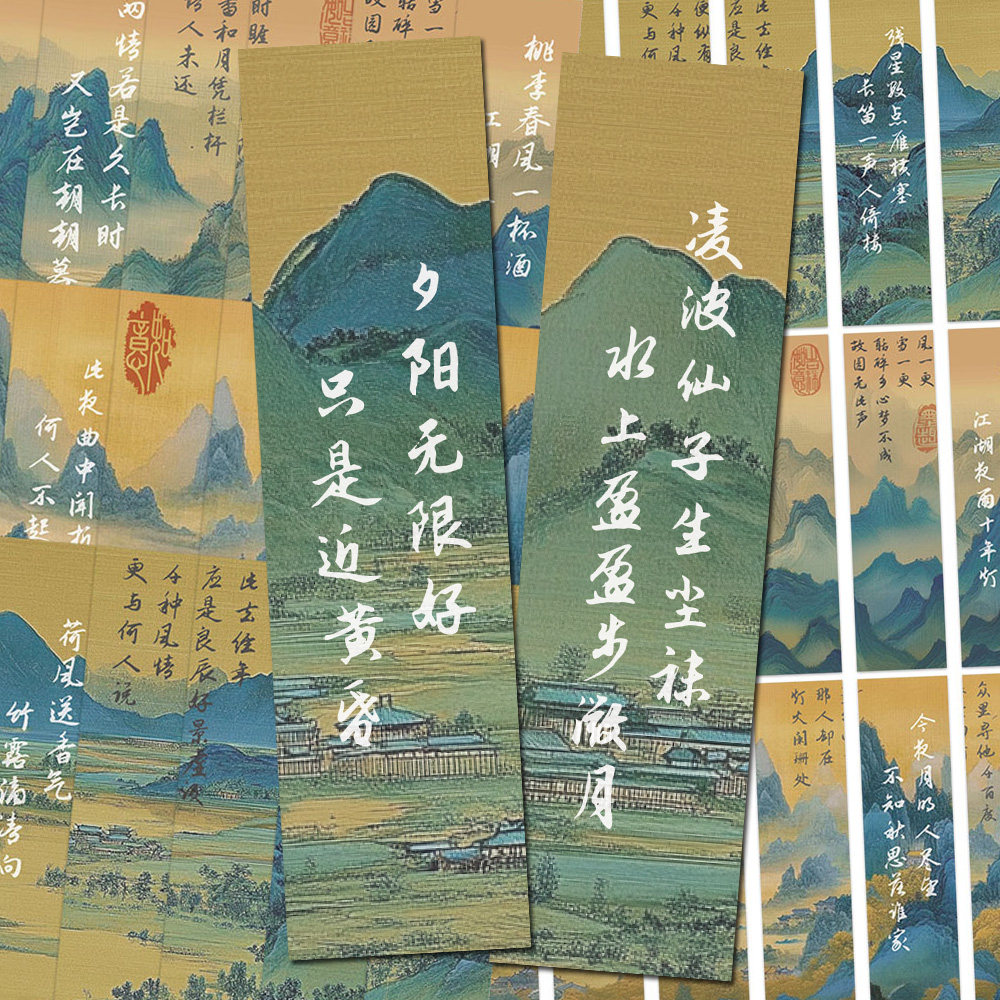 夕阳无限好
只是近黄昏
凌波仙子生尘袜
水上盈盈步微月
两情若是久长时
又岂在朝朝暮
和月凭栏杆
人未还
桃李春风一杯酒
江湖
此夜曲中闻折
何人不起
此去经年
应是良辰好景虚设
千种风情
更与何人说
荷风送香气
竹露滴清
便纵有
千种风
更与何
残星数点雁横塞
长笛一声人倚楼
风一更
雪一更
聒碎乡心梦不成
故园无此声
江湖夜雨十年灯
众里寻他千百度
那人却在
灯火阑珊处
今夜月明人尽望
不知秋思落谁家